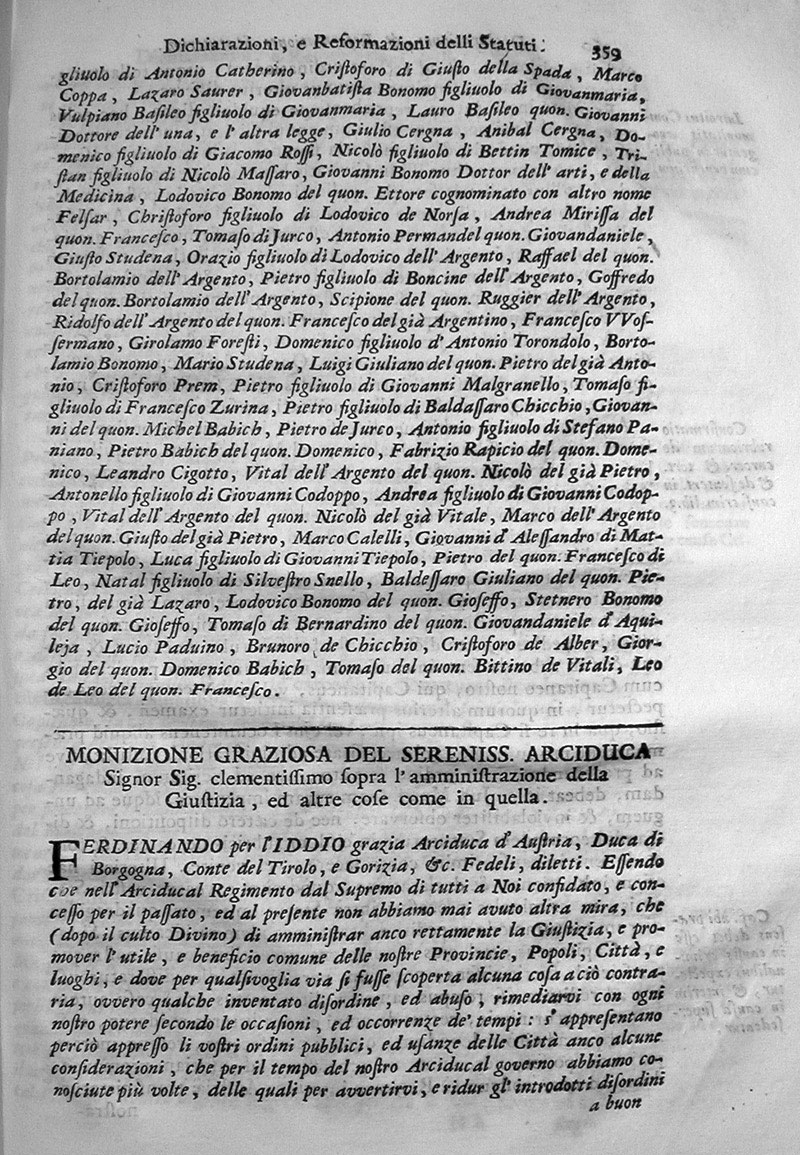 Dichiarazioni, e Reformazioni delli Statuti. 359
gliuolo di Antonio Catherino, Criſtoforo di Giuſto della Spada, Marco
Coppa, Lazaro Saurer, Giovanbatiſta Bonomo figliuolo di Giovanmaria,
Vulpiano Baſileo figliuolo di Giovanmaria, Lauro Baſileo quon. Giovanni
Dottore dell' una, e l' altra legge, Giulio Cergna, Anibal Cergna, Do-
menico figliuolo di Giacomo Roſſi, Nicolò figliuolo di Bettin Tomice, Tri-
ſtan figliuolo di Nicolò Maſſaro, Giovanni Bonomo Dottor dell' arti, e della
Medicina, Lodovico Bonomo del quon. Ettore cognominato con altro nome
Felſar, Chriſtoforo figliuolo di Lodovico de Norſa, Andrea Miriſſa del
quon. Franceſco, Tomaſo di Jurco, Antonio Permandel quon. Giovandaniele,
Giuſto Studena, Orazio figliuolo di Lodovico dell' Argento, Raffael del quon.
Bortolamio dell' Argento, Pietro figliuolo di Boncine dell' Argento, Goffredo
del quon. Bortolamio dell' Argento, Scipione del quon. Ruggier dell' Argento,
Ridolfo dell' Argento del quon. Franceſco del già Argentino, Franceſco VVoſ-
ſermano, Girolamo Foreſti, Domenico figliuolo d' Antonio Torondolo, Borto-
lamio Bonomo, Mario Studena, Luigi Giuliano del quon. Pietro del già Anto-
nio, Criſtoforo Prem, Pietro figliuolo di Giovanni Malgranello, Tomaſo fi-
gliuolo di Franceſco Zurina, Pietro figliuolo di Baldaſſaro Chicchio, Giovan-
ni del quon. Michel Babich, Pietro de Jurco, Antonio figliuolo di Stefano Pa-
niano, Pietro Babich del quon. Domenico, Fabrizio Rapicio del quon. Dome-
nico, Leandro Cigotto, Vital dell' Argento del quon. Nicolò del già Pietro,
Antonello figliuolo di Giovanni Codoppo, Andrea figliuolo di Giovanni Codop-
po, Vital dell' Argento del quon. Nicolò del già Vitale, Marco dell' Argento
del quon. Giuſto del già Pietro, Marco Calelli, Giovanni d' Aleſſandro di Mat-
tia Tiepolo, Luca figliuolo di Giovanni Tiepolo, Pietro del quon. Franceſco di
Leo, Natal figliuolo di Silveſtro Snello, Baldeſſaro Giuliano del quon. Pie-
tro, del già Lazaro, Lodovico Bonomo del quon. Gioſeffo, Stetnero Bonomo
del quon. Gioſeffo, Tomaſo di Bernardino del quon. Giovandaniele d' Aqui-
leja, Lucio Paduino, Brunoro de Chicchio, Criſtoforo de Alber, Gior-
gio del quon. Domenico Babich, Tomaſo del quon. Bittino de Vitali, Leo
de Leo del quon. Franceſco.
MONIZIONE GRAZIOSA DEL SERENISS. ARCIDUCA
Signor Sig. clementiſſimo ſopra l' amminiſtrazione della
Giuſtizia, ed altre coſe come in quella.
FERDINANDO per l' IDDIO grazia Arciduca d' Auſtria, Duca di
Borgogna, Conte del Tirolo, e Gorizia, &c. Fedeli, diletti. Eſſendo
che nell' Arciducal Regimento dal Supremo di tutti a Noi confidato, e con-
ceſſo per il paſſato, ed al preſente non abbiamo mai avuto altra mira, che
(dopo il culto Divino) di amminiſtrar anco rettamente la Giuſtizia, e pro-
mover l' utile, e beneficio comune delle noſtre Provincie, Popoli, Città, e
luoghi, e dove per qualſivoglia via ſi fuſſe ſcoperta alcuna coſa a ciò contra-
ria, ovvero qualche inventato diſordine, ed abuſo, rimediarvi con ogni
noſtro potere ſecondo le occaſioni, ed occorrenze de' tempi: s' appreſentano
perciò appreſſo li voſtri ordini pubblici, ed uſanze delle Città anco alcune
conſiderazioni, che per il tempo del noſtro Arciducal governo abbiamo co-
noſciute più volte, delle quali per avvertirvi, e ridur gl' introdotti diſordini
a buon